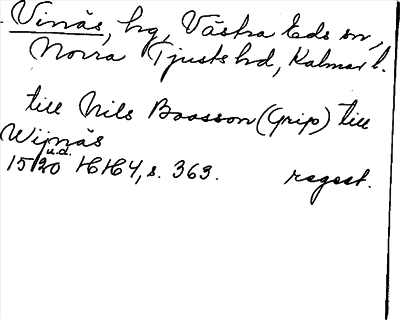 Vinäs, hg, Västra Eds sn,
Norra Tjusts hd, Kalmar l.
till Nils Boosson (Grip) till
Wijnäs
u.d.
1520 HH4, s. 363. regest.